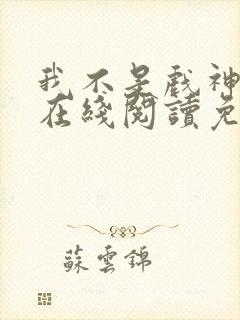 我不是戲神
在綫閱讀免
蘇雲錦